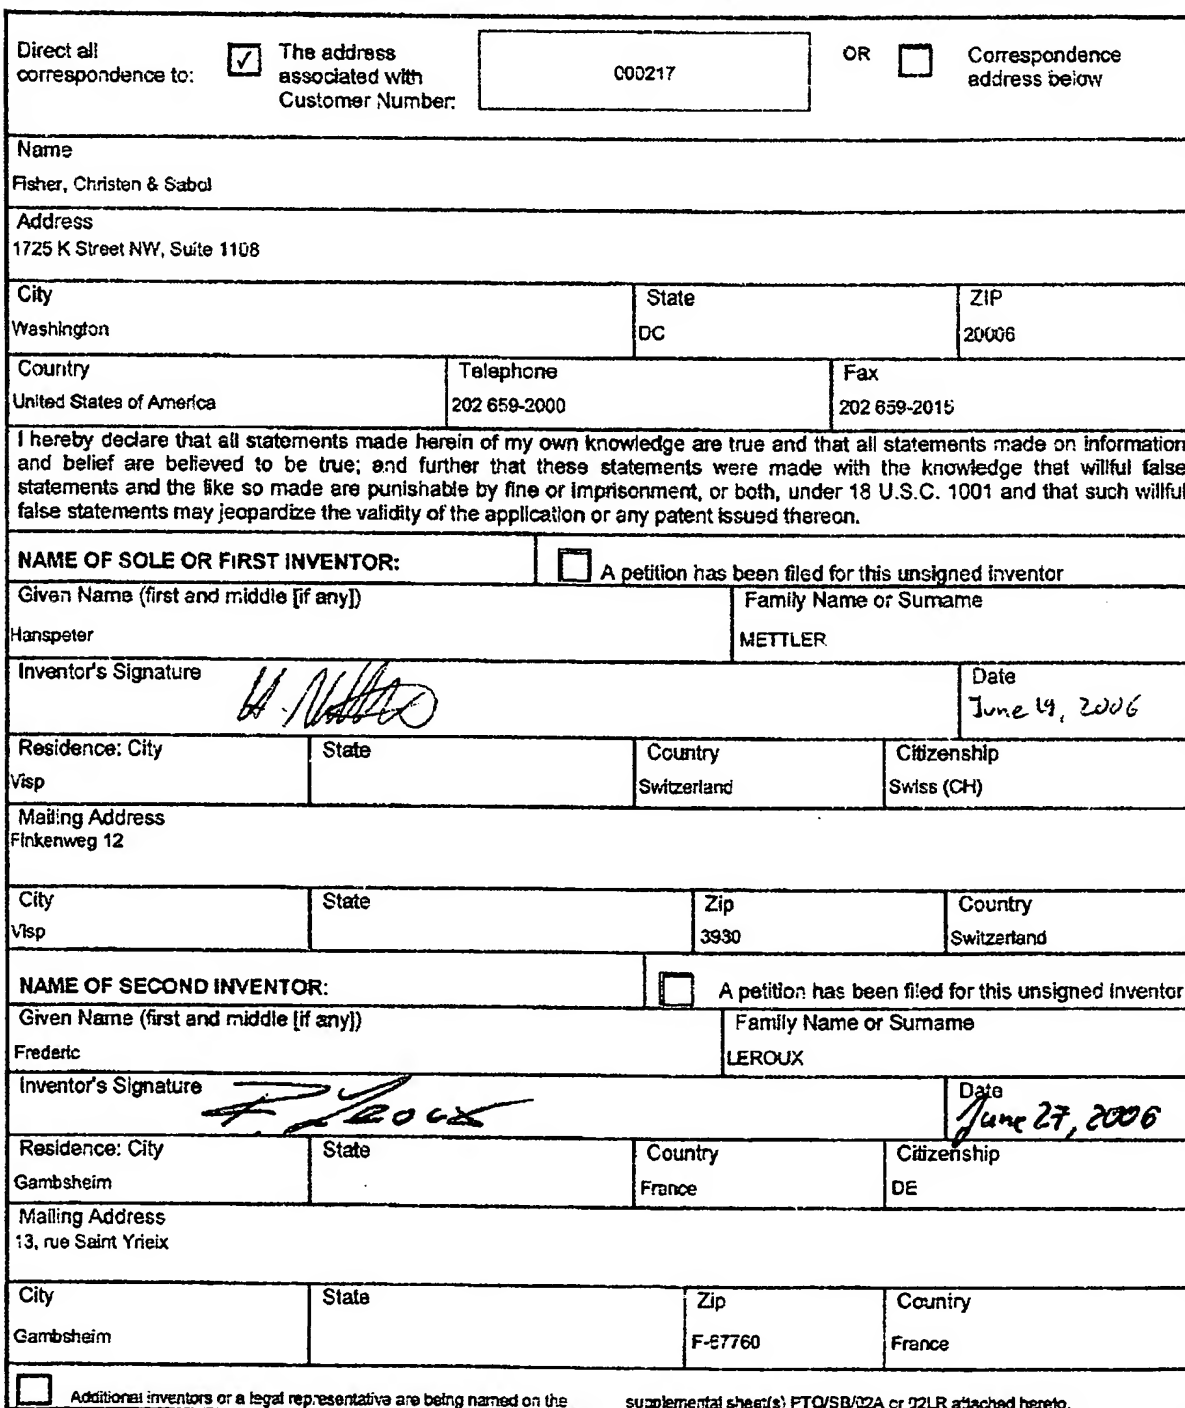 Direct all correspondence to:
✓ The address associated with Customer Number:
000217
OR
Correspondence address below
Name
Fisher, Christen & Sabol
Address
1725 K Street NW, Suite 1108
City State ZIP
Washington DC 20006
Country Telephone Fax
United States of America 202 659-2000 202 659-2015
I hereby declare that all statements made herein of my own knowledge are true and that all statements made on information
and belief are believed to be true; and further that these statements were made with the knowledge that willful false
statements and the like so made are punishable by fine or imprisonment, or both, under 18 U.S.C. 1001 and that such willful
false statements may jeopardize the validity of the application or any patent issued thereon.
NAME OF SOLE OR FIRST INVENTOR: A petition has been filed for this unsigned inventor
Given Name (first and middle [if any]) Family Name or Surname
Hanspeter METTLER
Inventor's Signature Date
June 19, 2006
Residence: City State Country Citizenship
Visp Switzerland Swiss (CH)
Mailing Address
Finkenweg 12
City State Zip Country
Visp 3930 Switzerland
NAME OF SECOND INVENTOR: A petition has been filed for this unsigned inventor
Given Name (first and middle [if any]) Family Name or Surname
Frederic LEROUX
Inventor's Signature F. Leroux Date
June 27, 2006
Residence: City State Country Citizenship
Gambsheim France DE
Mailing Address
13, rue Saint Yrieix
City State Zip Country
Gambsheim F-67760 France
Additional inventors or a legal representative are being named on the supplemental sheet(s) PTO/SB/02A or 02LR attached hereto.